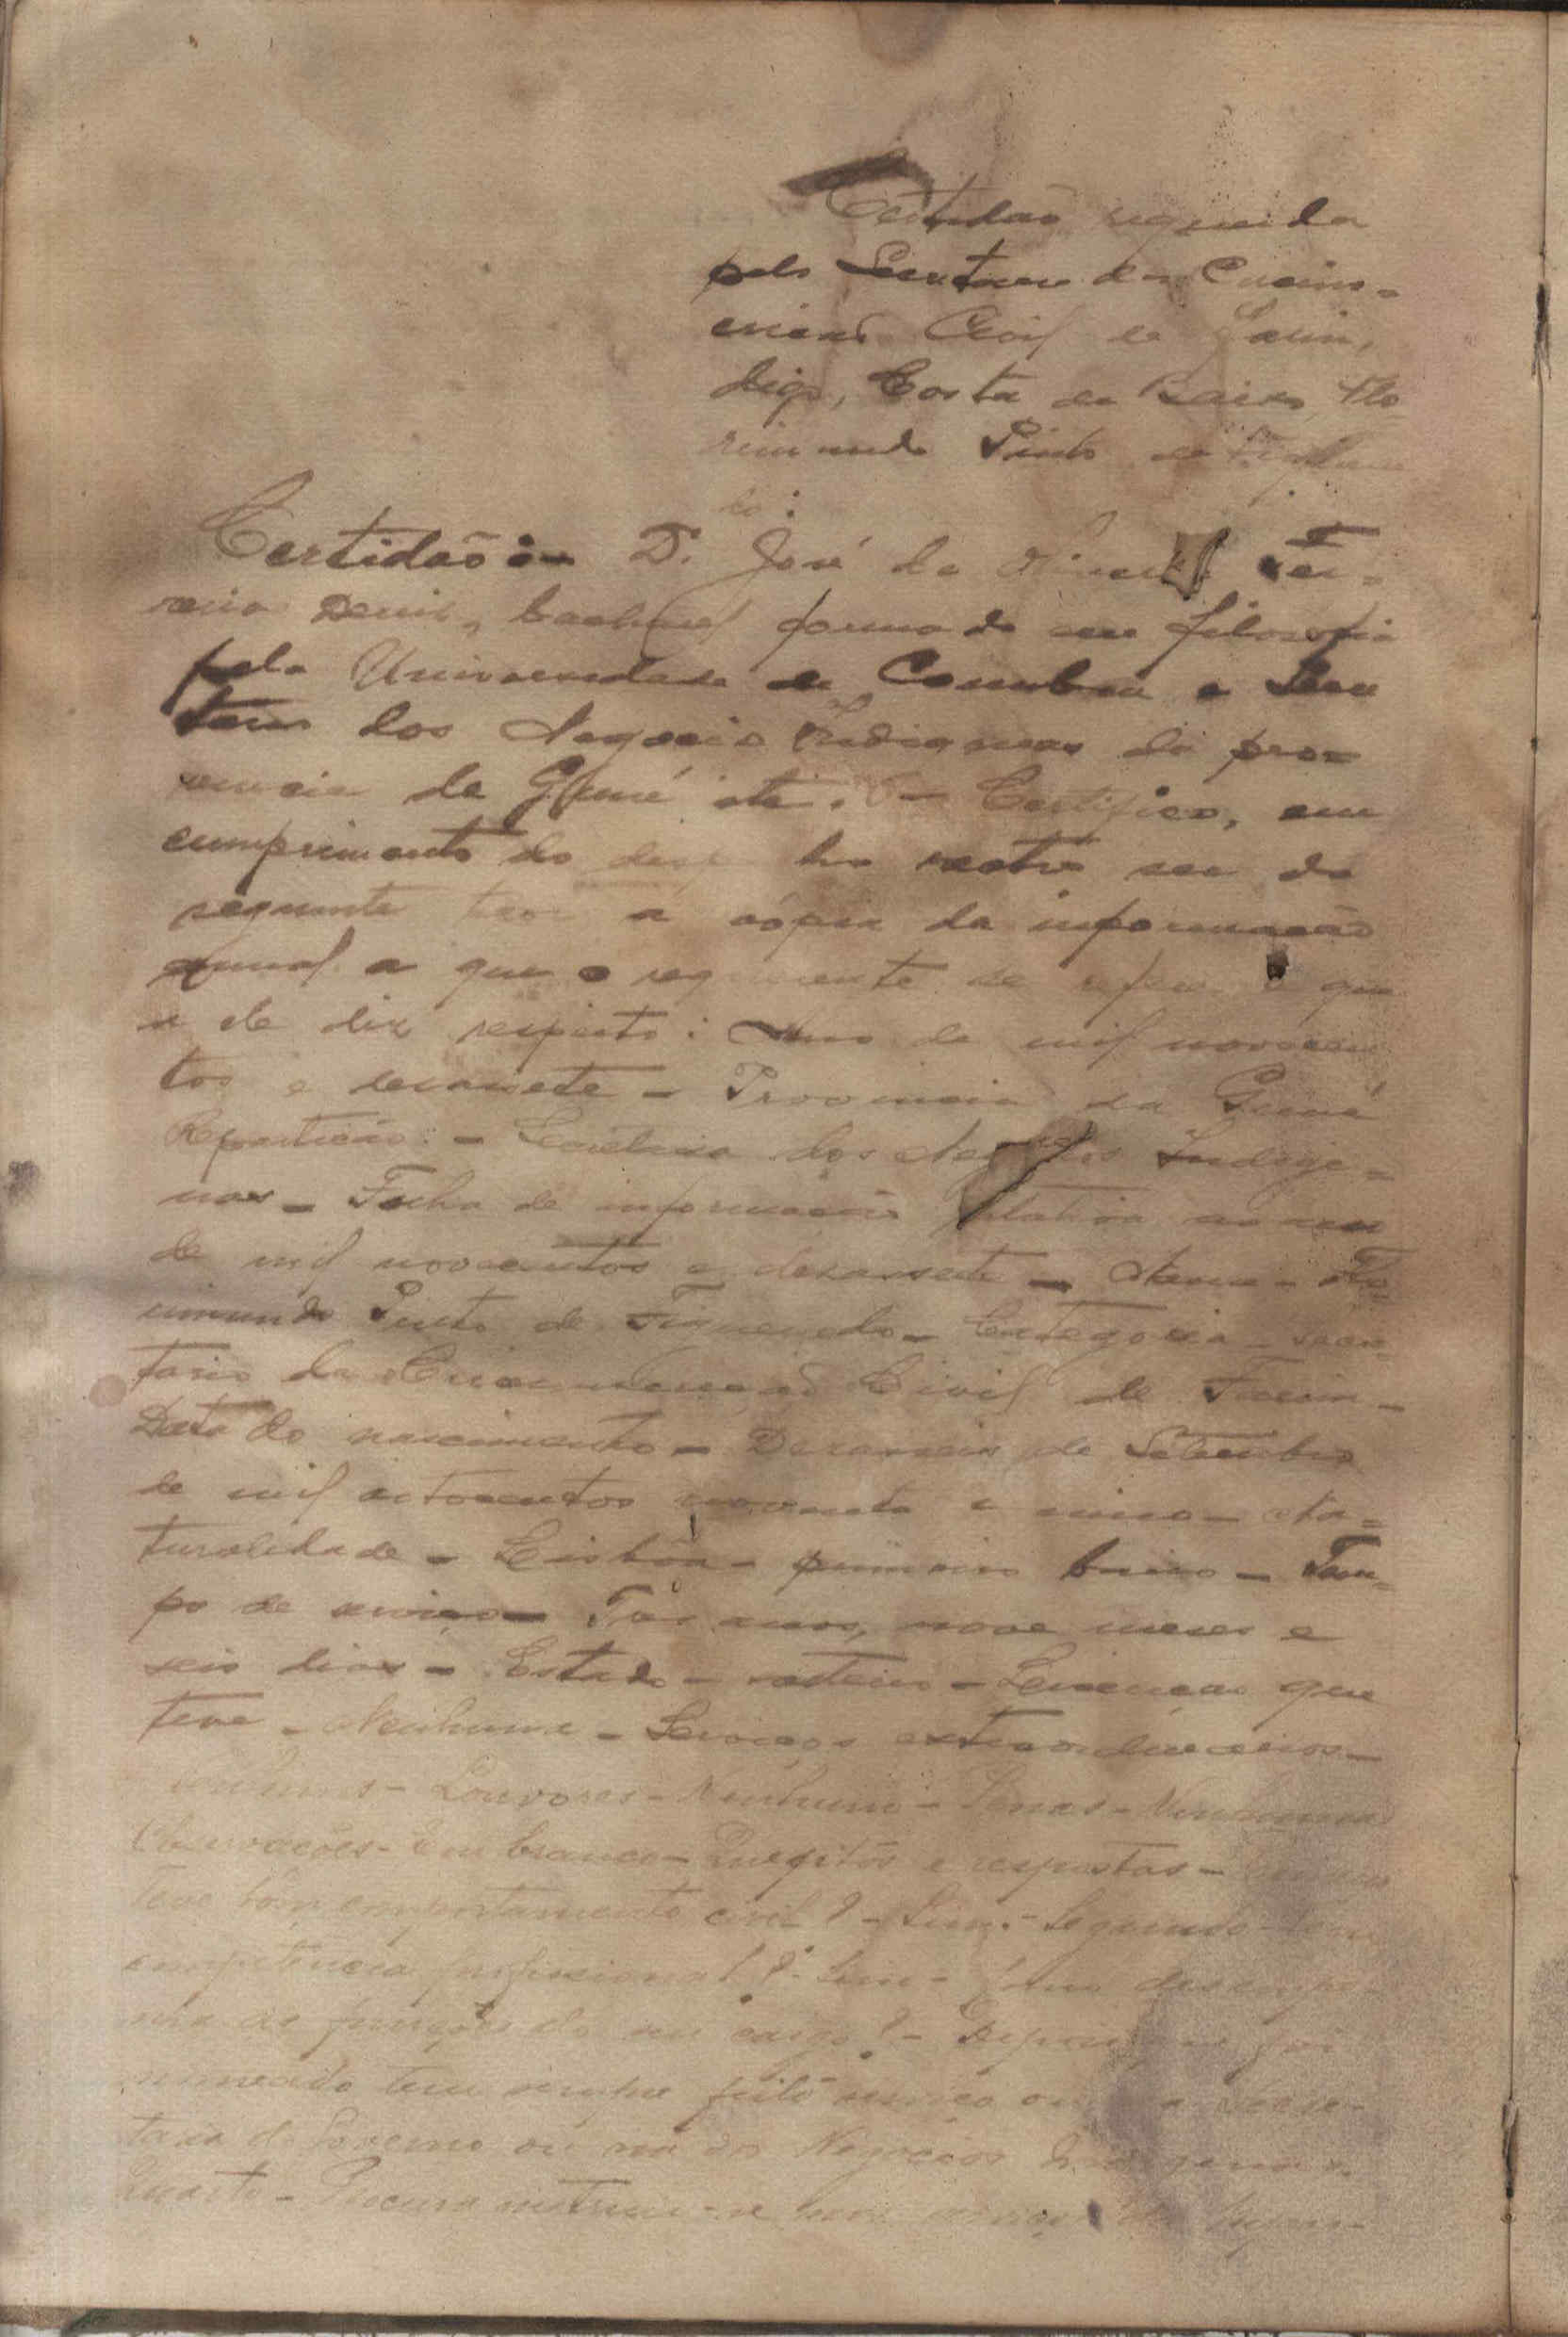 Certidão requerida
pelo Secretario da Circuns-
crição Civil de Farim,
digo, Costa de Baixo, Flo-
rimundo Pinto de Figueire
do:
Certidão:- D. José de Fer-
reira Diniz, bacharel formado em filosofia
pela Universidade de Coimbra e Secre
tario dos Negocios Indigenas da pro-
vincia da Guiné etc. - Certifico, em
cumprimento do despacho retro ser do
seguinte teor a cópia da informação
anual a que o requerente se refere e que
a ele diz respeito: Ano de mil novecen
tos e dezassete - Provincia da Guiné
Repartição:- Secretaria dos Negocios Indige-
nas - Folha de informação relativa ao ano
de mil novecentos e dezassete - Nome - Flo
rimundo Pinto de Figueiredo - Categoria - secre-
tario da Circunscrição Civil de Farim -
Data do nascimento - Dezasseis de Setembro
de mil oitocentos noventa e cinco - Na-
turalidade - Lisboa - primeiro bairro - Tem-
po de serviço - Três anos, nove meses e
seis dias - Estado - solteiro - Licenças que
teve - Nenhuma - Serviços extraordinarios -
Nenhuns - Louvores - Nenhum - Penas - Nenhuma
Observações - Em branco - Quesitos e respostas - Primeiro
Teve bom comportamento civil? - Sim. - Segundo - Tem
competencia profissional? - Sim - Como desempe-
nha as funções do seu cargo? - Depois que foi
nomeado tem sempre feito serviço ou na Secre-
taria do Governo ou na dos Negocios Indigenas
Quarto - Procura instruir-se nos serviços